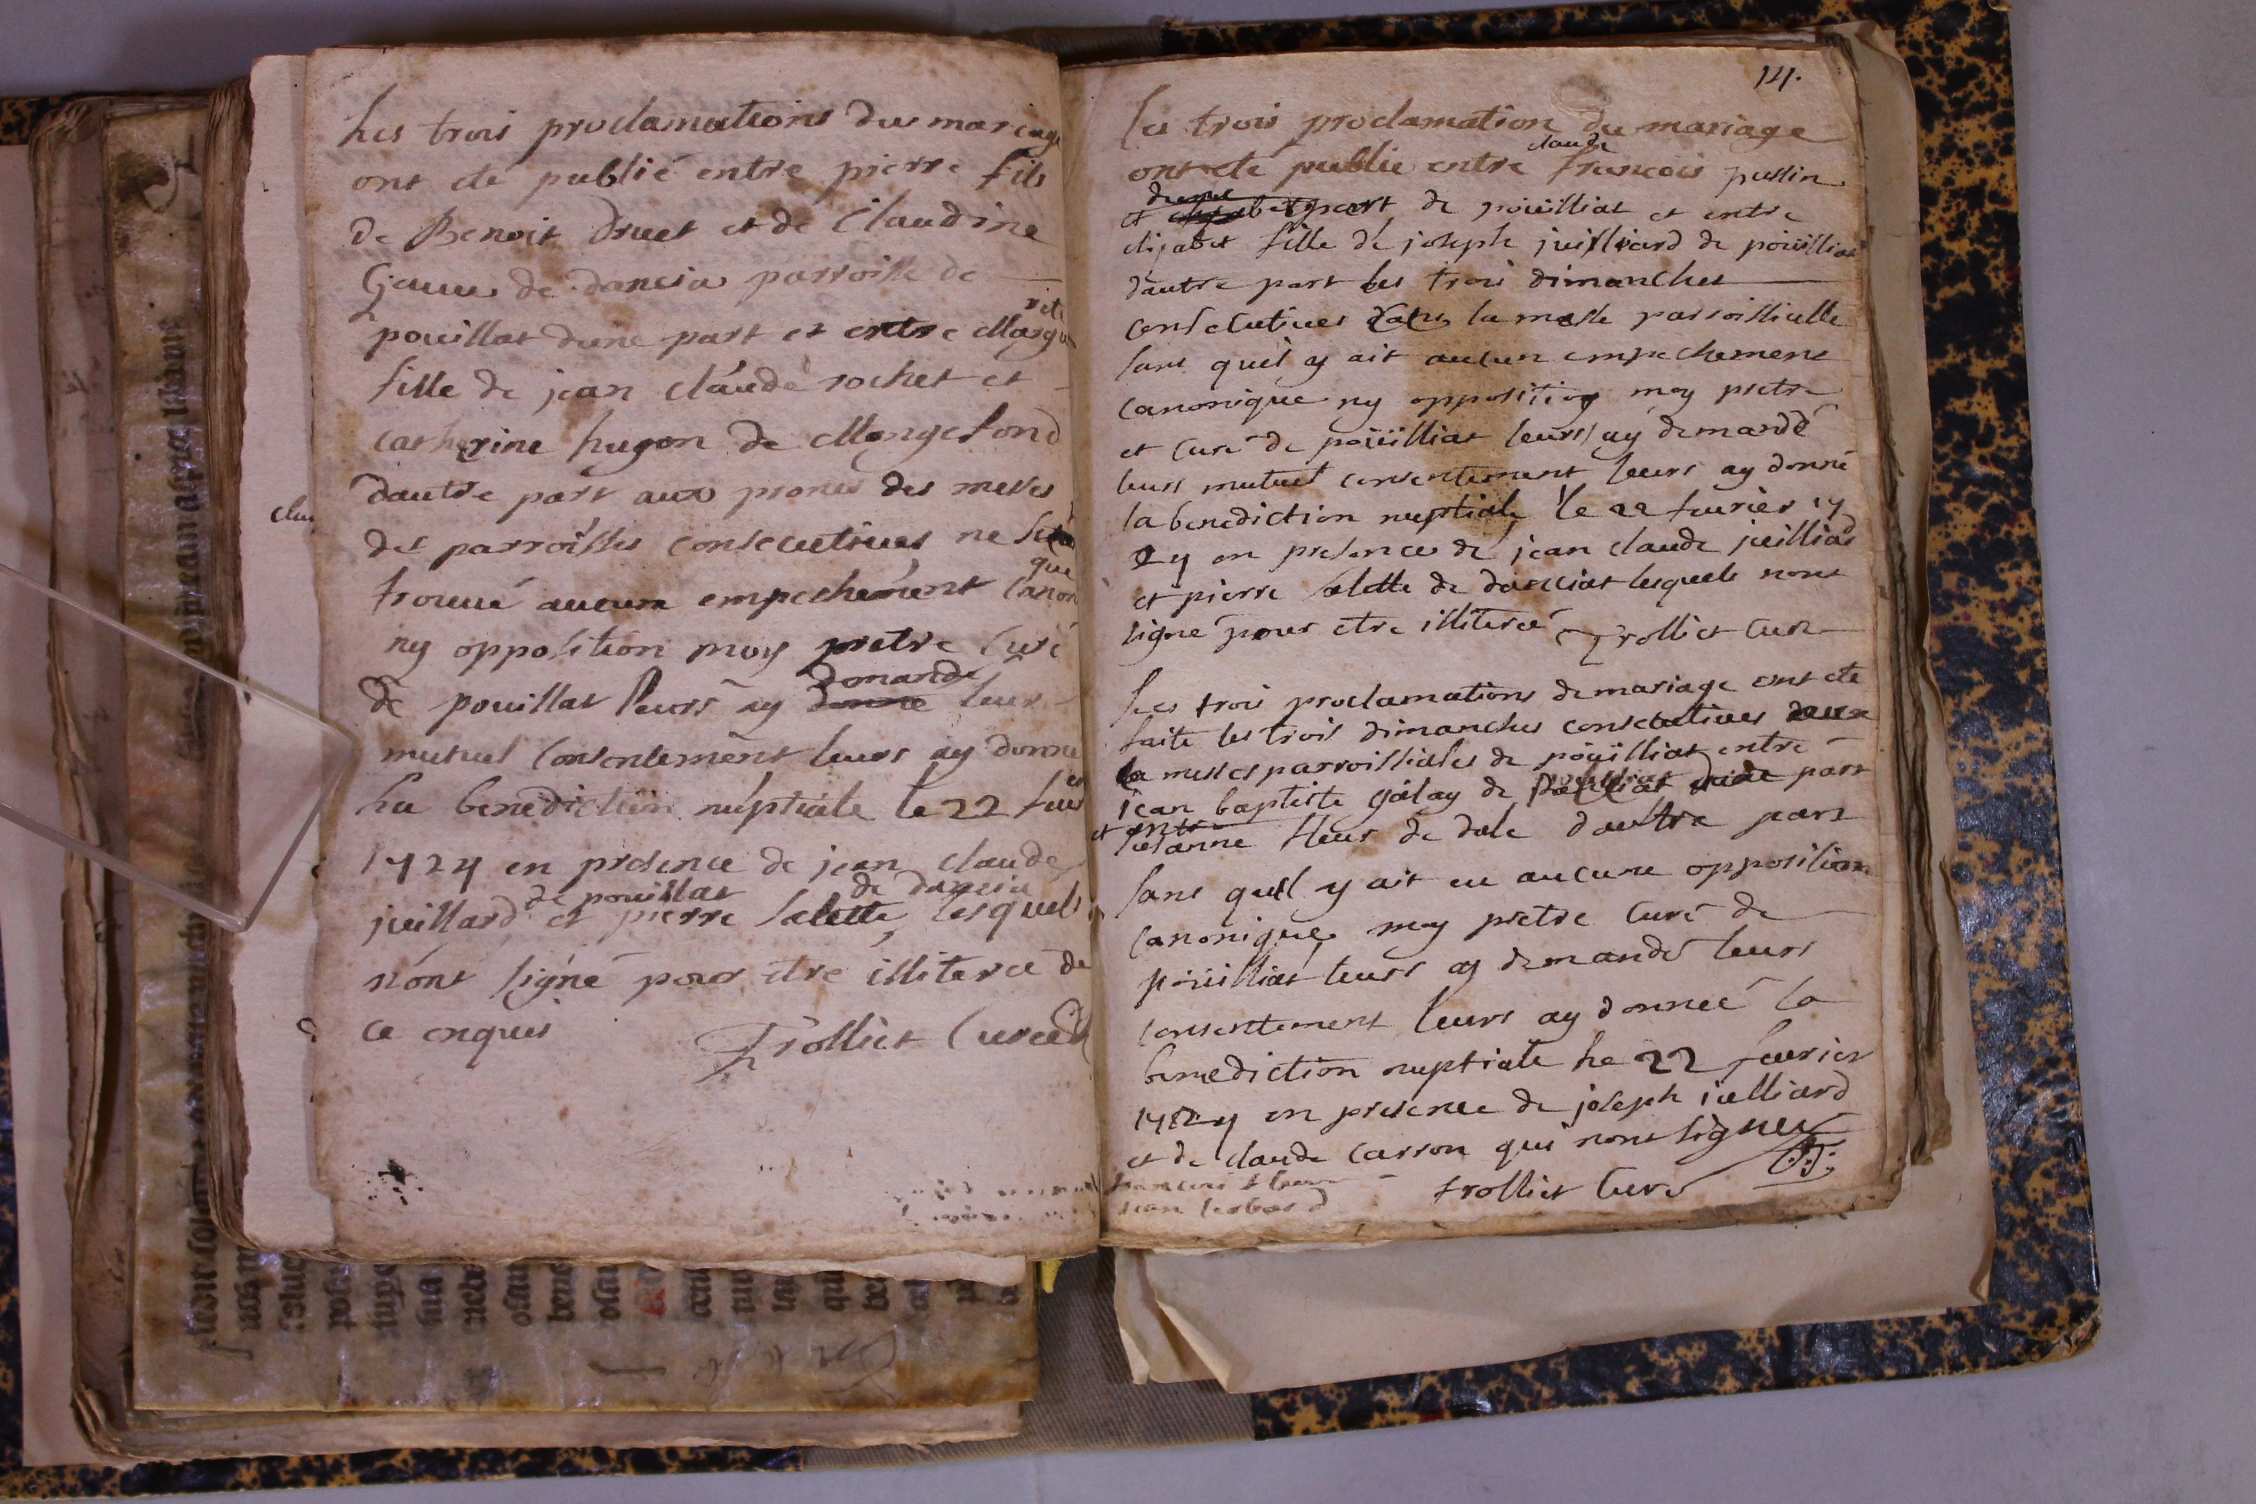 Les trois proclamations du mariage
ont eté publié entre pierre fils
de Benoit Druet et de Claudine
de dancia parroisse de
pouillat dune part et entre Marguerite
fille de jean claude rochet et
catherine hugon de Mongefond
dautre part aux prones des messes
des parroisses consecutives ne
trouué aucun empechement canonique
ny opposition moy pretre Curé
de pouillat leurs ay demandé leur
mutuel consentement leurs ay donne
La benediction nuptiale le 22
1724 en presence de jean claude
juillard de pouillat et pierre Salette de dancia lesquels
n'ont signé pour etre illiteré de
ce enquis Trolliet Curé
14.
les trois proclamation du mariage
ont ete publie entre claude françois
dune part de poüilliat et entre
elizabet fille de joseph juilliard de poüilliat
dautre part les trois dimanches
consecutives dans la messe parroissialle
sans quil y ait aucun empechement
canonique ny opposition moy pretre
et curé de poüilliat leurs ay demandé
leurs mutuel consentement leurs ay donné
la benediction nuptiale le 22 feurier 17
24 en presence de jean claude juilliard
et pierre Salette de danciat lesquels nont
signé pour etre illiteré Trolliet Curé
Les trois proclamations de mariage ont ete
faite les trois dimanches consecutives
la messes parroissiales de poüilliat entre
jean baptiste galay de poüilliat dune part
et entre susanne fleur de dole dautre part
sans quil y ait eu aucune opposition
canonique moy pretre curé de
poüilliat leurs ay demandé leurs
consentement leurs ay donneé la
benediction nuptiale he 22 feurier
1724 en presence de joseph iulliard
et de claude carron qui nont signer
trolliet Curé